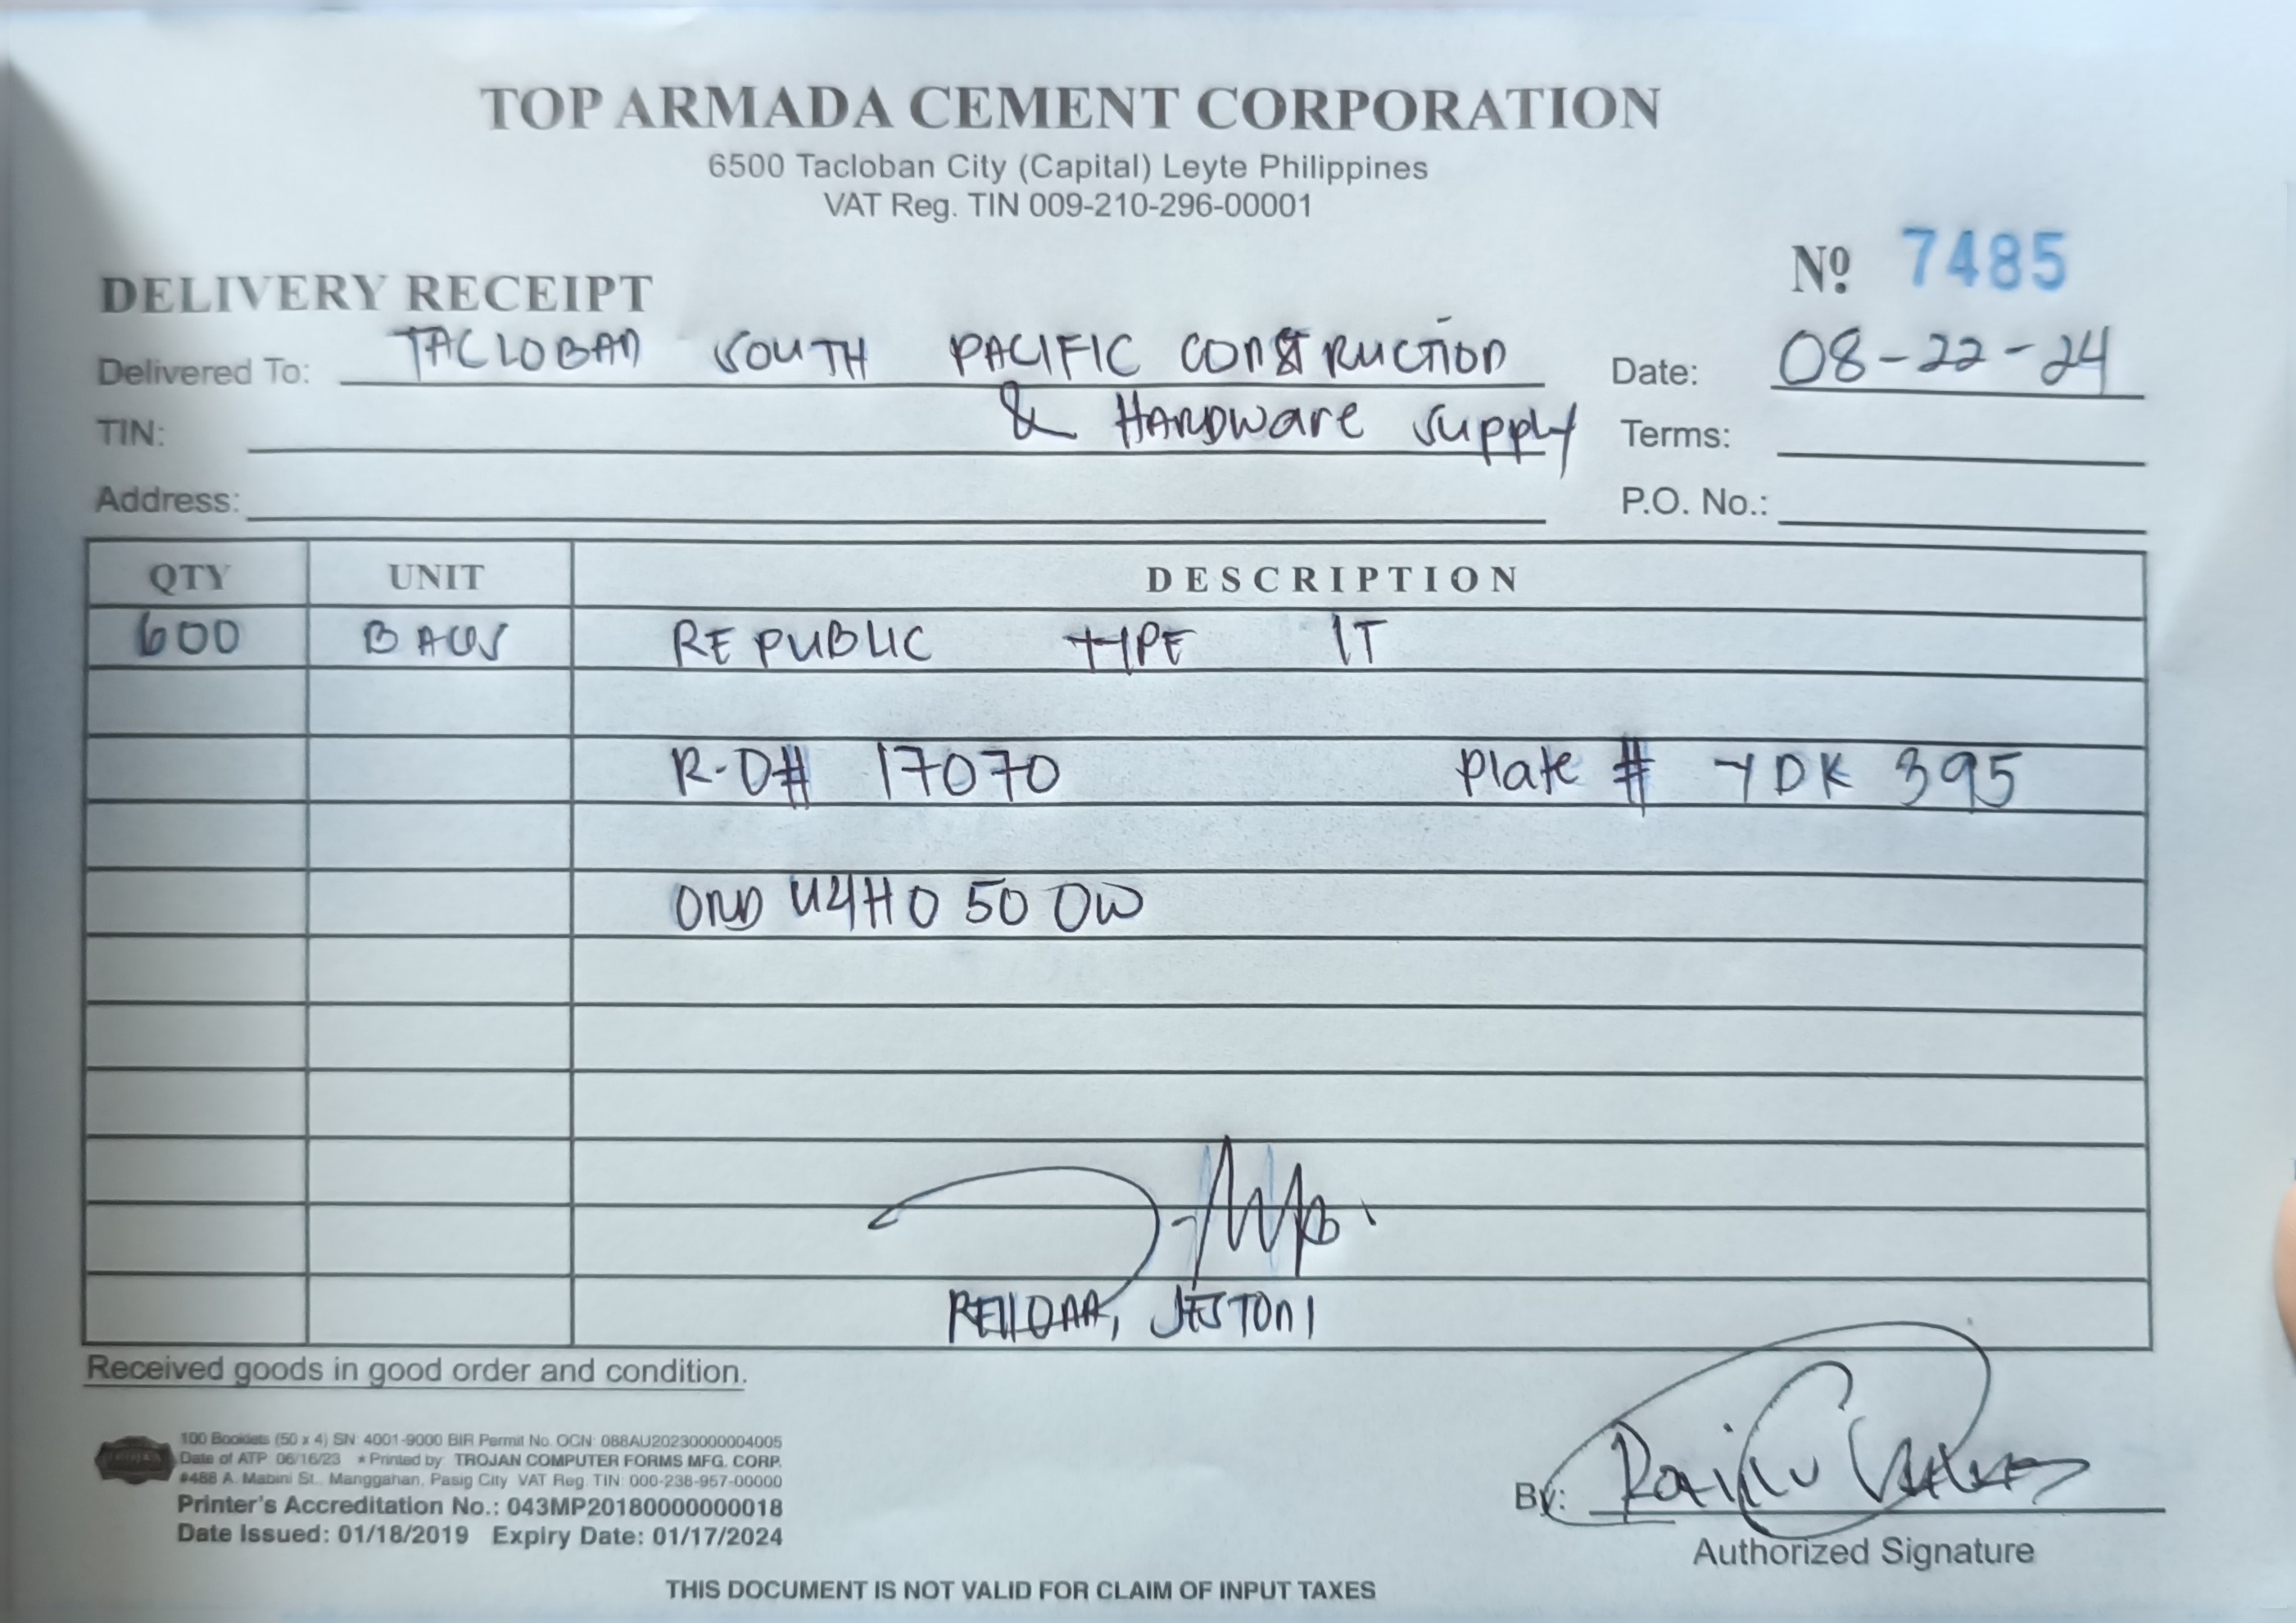 TOP ARMADA CEMENT CORPORATION
6500 Tacloban City (Capital) Leyte Philippines
VAT Reg. TIN 009-210-296-00001
Nº 7485
DELIVERY RECEIPT
Delivered To: TACLOBAN SOUTH PACIFIC CONSTRUCTION Date: 08-22-24
& HARDWARE SUPPLY
TIN: Terms:
Address: P.O. No.:
QTY UNIT DESCRIPTION
600 BAGS REPUBLIC TYPE 1T
R-O# 17070 Plate # YDK 395
50 OW
JESTONI
Received goods in good order and condition.
100 Booklets (50 x 4) SN: 4001-9000 BIR Permit No. OCN: 088AU20230000004005
Date of ATP 06/16/23 * Printed by: TROJAN COMPUTER FORMS MFG. CORP.
#488 A. Mabini St., Manggahan, Pasig City VAT Reg. TIN: 000-238-957-00000
Printer's Accreditation No.: 043MP20180000000018
Date Issued: 01/18/2019 Expiry Date: 01/17/2024
By:
Authorized Signature
THIS DOCUMENT IS NOT VALID FOR CLAIM OF INPUT TAXES